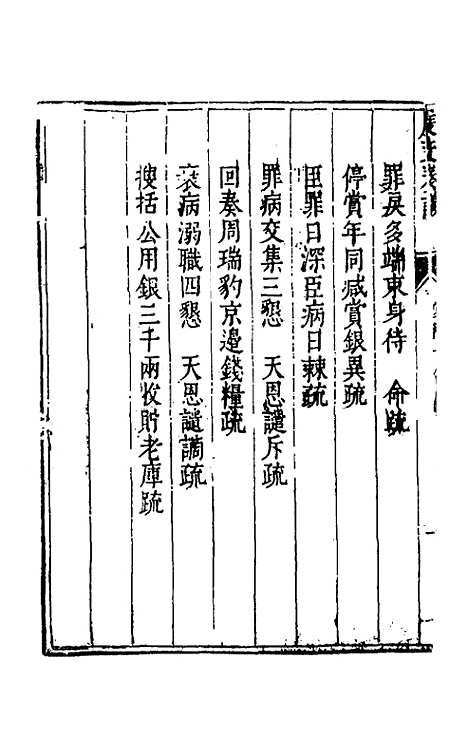 罪戾多端束身待　命疏
停賞年同減賞銀異疏
臣罪日深臣病日棘疏
罪病交集三懇　天恩譴斥疏
回奏周瑞豹京邊錢糧疏
衰病溺職四懇　天恩譴謫疏
搜括公用銀三千兩收貯老庫疏